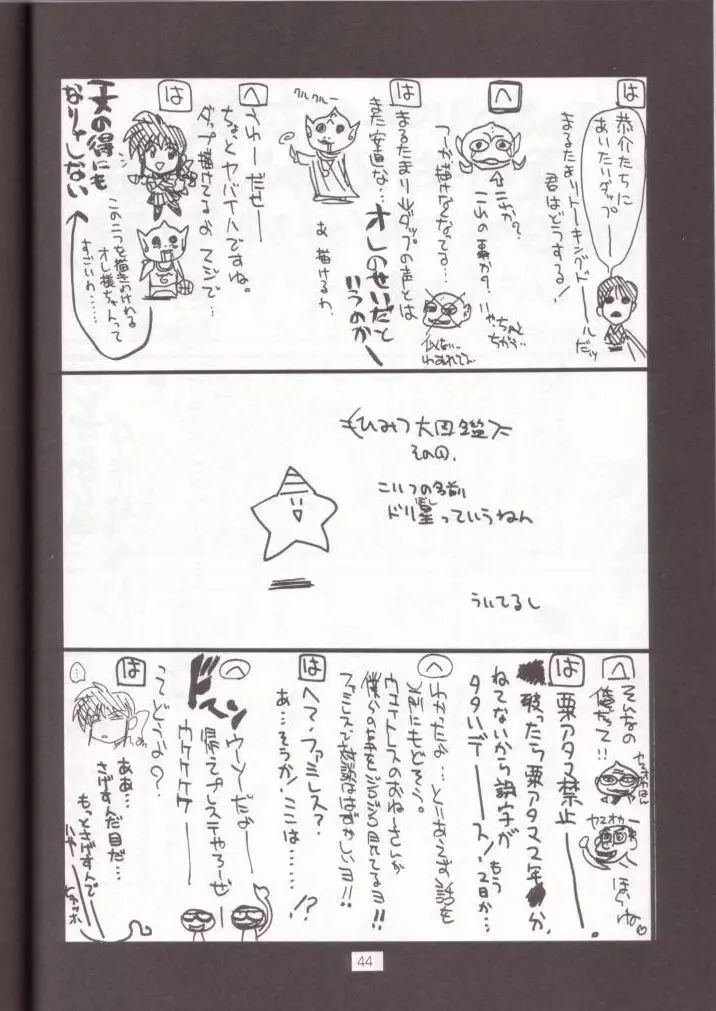 は
恭介たちに
あいたいダップ
まるたまりトーキングドールだッ
君はどうする!
へ
これか?
これの事か?
いや、ちゃんと
ちがく…
つーか描けなくなってる…
似ない…
は
まるたまり山ダップの声とは
また安直な…
オレのせいだと
いうのか
クルクルー
あ、描けるわ
へ
うわーだせー
ちょっとヤバイハですね。
ダップ描けてるよ、マジで…
は
この二つを描きわけれる
オレ様ちゃんって
すごいわ……
一文の得にも
なりゃしない
ひみつ大図鑑
その1.
こいつの名前
ドリ星っていうねん
ぼし
ういてるし
へ
そんなの
俺だって!!
ヤマオカ
ほらね
は
栗アタマ禁止ー
破ったら栗アタマ2年か
ねてないから誤字が
もう2日か…
タタいデース!
へ
わかったよ…とにあえず話を
元にもどそう。
ウェイトレスのおねーさんが
僕らの事をジロジロ見てるヨ!!
ファミレスで対談ははずかしいヨ!!
は
へ?ファミレス?
あ…そうか!ここは……!?
へ
ドスン
ウーソだよー
帰ってプレステやろーぜ
ウケケケケー
ってどうよな?
は
ああ…
さげすんだ目だ…
もっとさげすんで
44